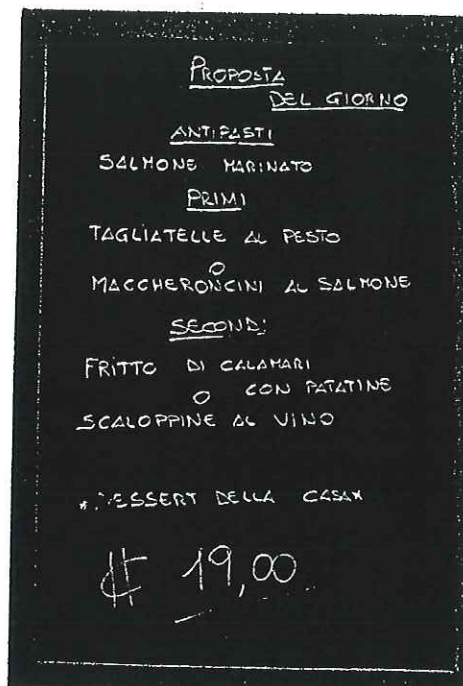 PROPOSTA
DEL GIORNO
ANTIPASTI
SALMONE MARINATO
PRIMI
TAGLIATELLE AL PESTO
O
MACCHERONCINI AL SALMONE
SECONDI
FRITTO DI CALAMARI
O CON PATATINE
SCALOPPINE AL VINO
*DESSERT DELLA CASA*
19,00